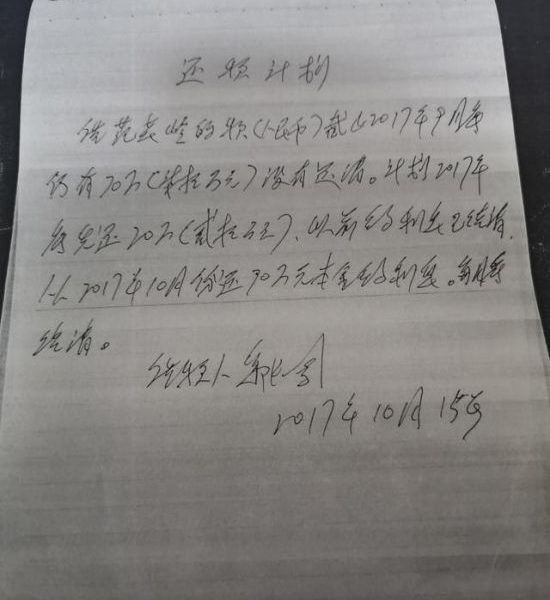 还款计划
借范燕嶺的款(人民币)截止2017年9月底
仍有70万(柒拾万元)没有还清。计划2017年
底先还20万(贰拾万元)、以前的利息已结清,
从2017年10月份还70万元本金的利息。每月底
结清。
借款人
2017年10月15号